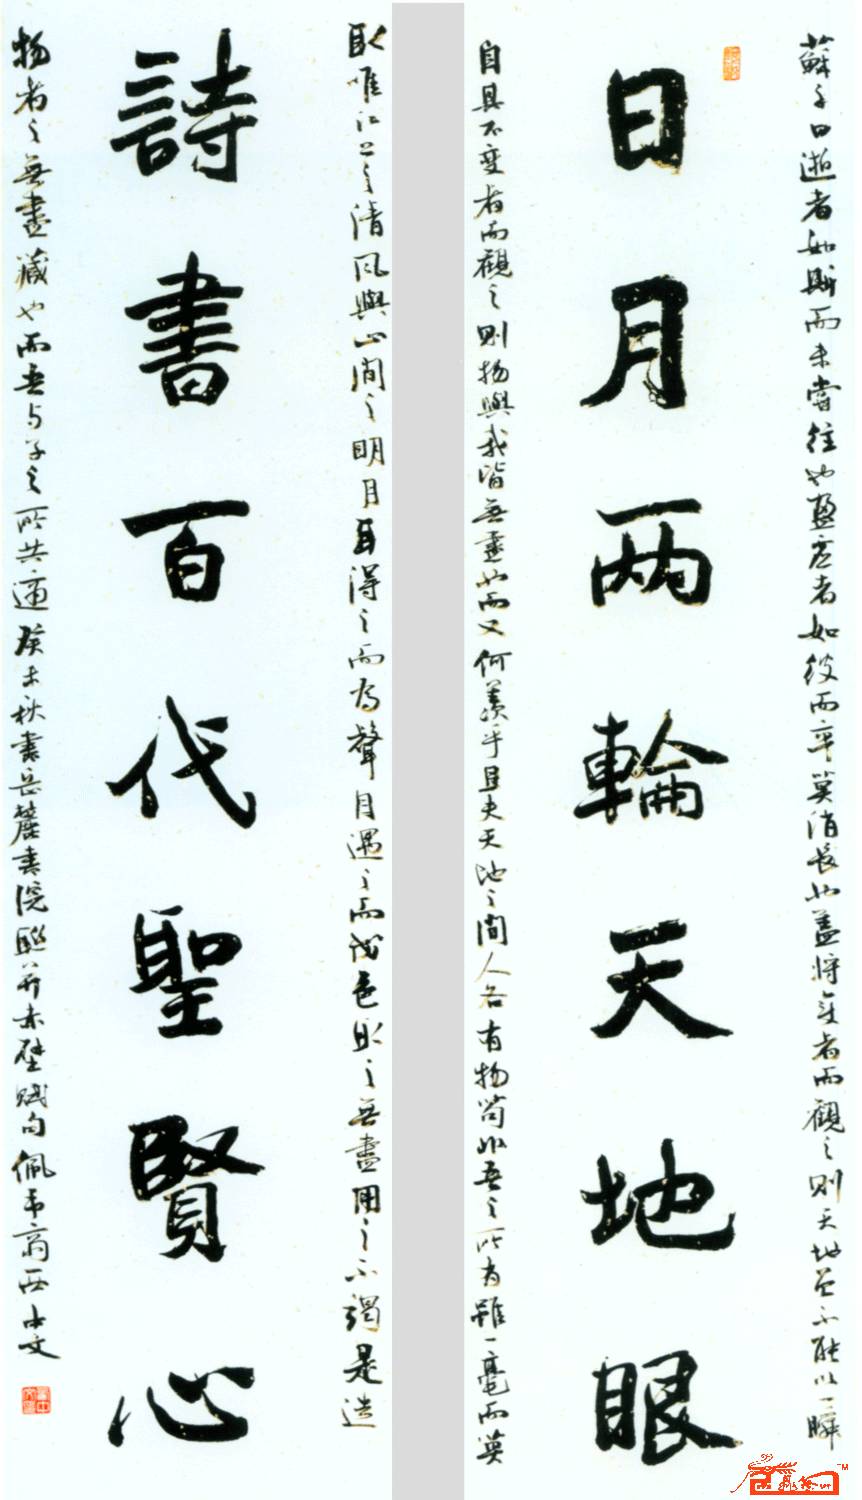 蘇子曰逝者如斯而未嘗往也盈虛者如彼而卒莫消長也盖將变者而觀之則天地曾不能以一瞬
日月两輪天地眼
自其不变者而觀之則物與我皆無盡也而又何羨乎且夫天地之間人各有物苟非吾之所有雖一毫而莫
取唯江上之清风與山間之明月耳得之而为聲目遇之而成色取之無盡用之不竭是造
詩書百代聖賢心
物者之無盡藏也而吾与子之所共適癸未秋書岳麓書院聯并赤壁賦句佩韦斋西中文